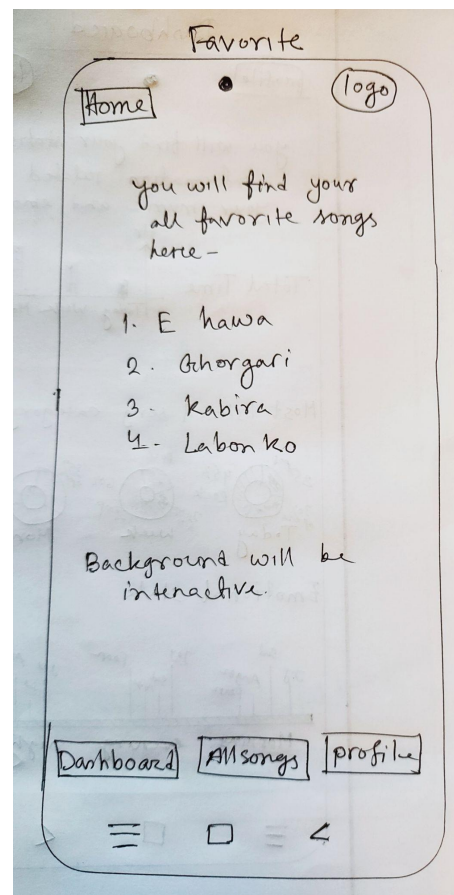 Favorite
Home
logo
you will find your
all favorite songs
here -
1. E hawa
2. Ghorgari
3. Kabira
4. Labon ko
Background will be
interactive.
Dashboard
All songs
profile